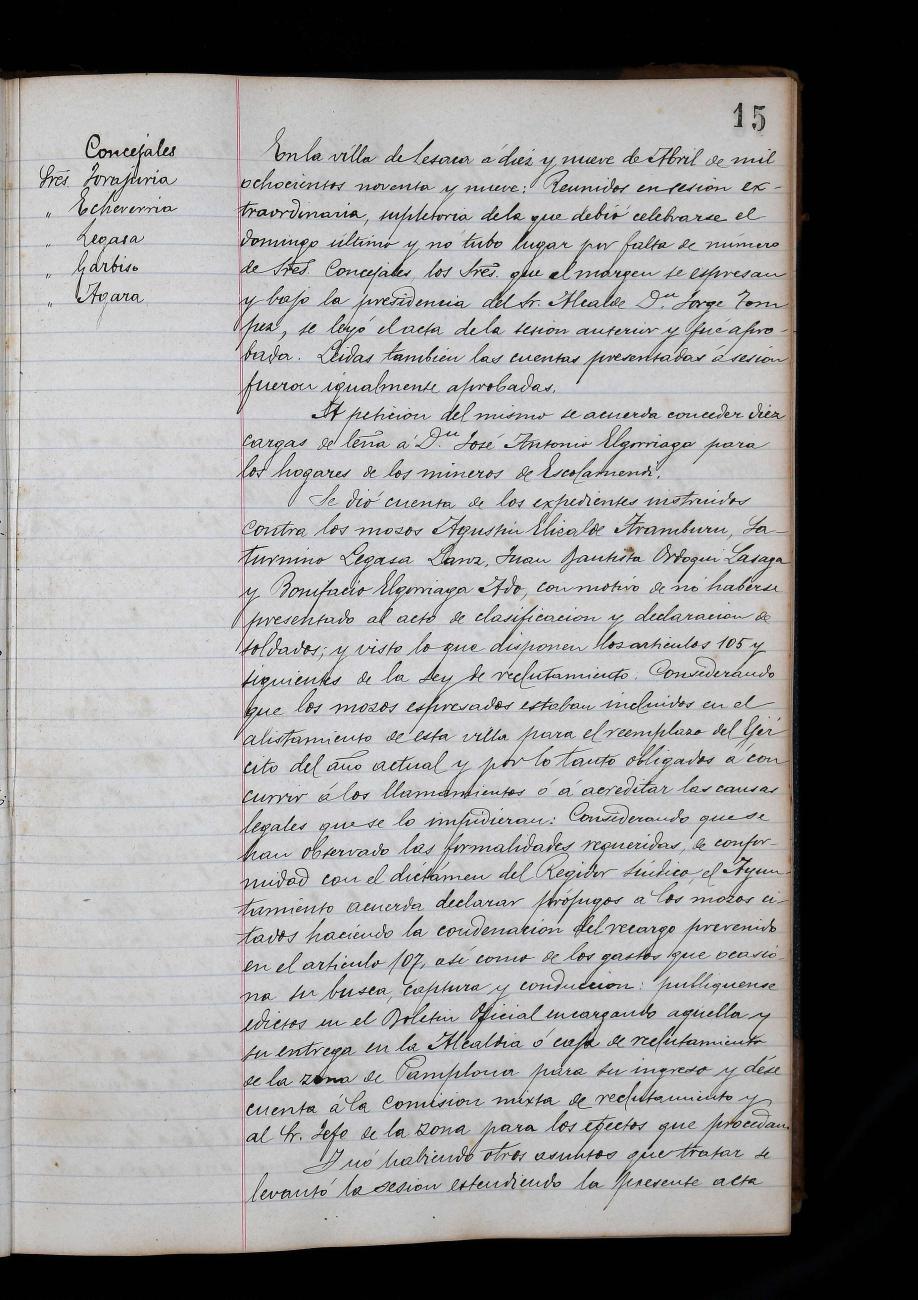 15
Concejales
Sres Jorajuria
" Echeverria
" Legasa
" Garbiso
" Agara
En la villa de Lesaca á diez y nueve de Abril de mil
ochocientos noventa y nueve: Reunidos en sesion ex-
traordinaria, supletoria de la que debió celebrarse el
domingo último y nó tubo lugar por falta de número
de Sres. Concejales los Sres. que al margen se espresan
y bajo la presidencia del Sr. Alcalde Dn Jorge
se leyó el acta de la sesion anterior y fué apro-
bada. Leidas tambien las cuentas presentadas á sesion
fueron igualmente aprobadas.
A peticion del mismo se acuerda conceder diez
cargas de leña á Dn José Antonio Elgorriaga para
los hogares de los mineros de Escolamendi.
Se dió cuenta de los expedientes instruidos
contra los mozos Agustin Elicalde Aramburu, Sa-
turnino Legasa Lanz, Juan Bautista Ordoqui Lasaga
y Bonifacio Elgorriaga Ado, con motivo de nó haberse
presentado al acto de clasificacion y declaracion de
soldados; y visto lo que disponen los articulos 105 y
siguientes de la Ley de reclutamiento. Considerando
que los mozos espresados estaban incluidos en el
alistamiento de esta villa para el reemplazo del Ejér
cito del año actual y por lo tanto obligados á con
currir á los llamamientos ó á acreditar las causas
legales que se lo impidieran: Considerando que se
han observado las formalidades requeridas, de confor-
midad con el dictámen del Regidor Sindico, el Ayun-
tamiento acuerda declarar prófugos á los mozos ci-
tados haciendo la condenacion del recargo prevenido
en el articulo 107, así como de los gastos que ocasio
na su busca, captura y conduccion: publiquense
edictos en el Boletin Oficial encargando aquella y
su entrega en la Alcaldia ó caja de reclutamiento
de la zona de Pamplona para su ingreso y dése
cuenta á la Comision mixta de reclutamiento y
al Sr. Jefe de la zona para los efectos que procedan.
Y nó habiendo otros asuntos que tratar se
levantó la sesion estendiendo la presente acta